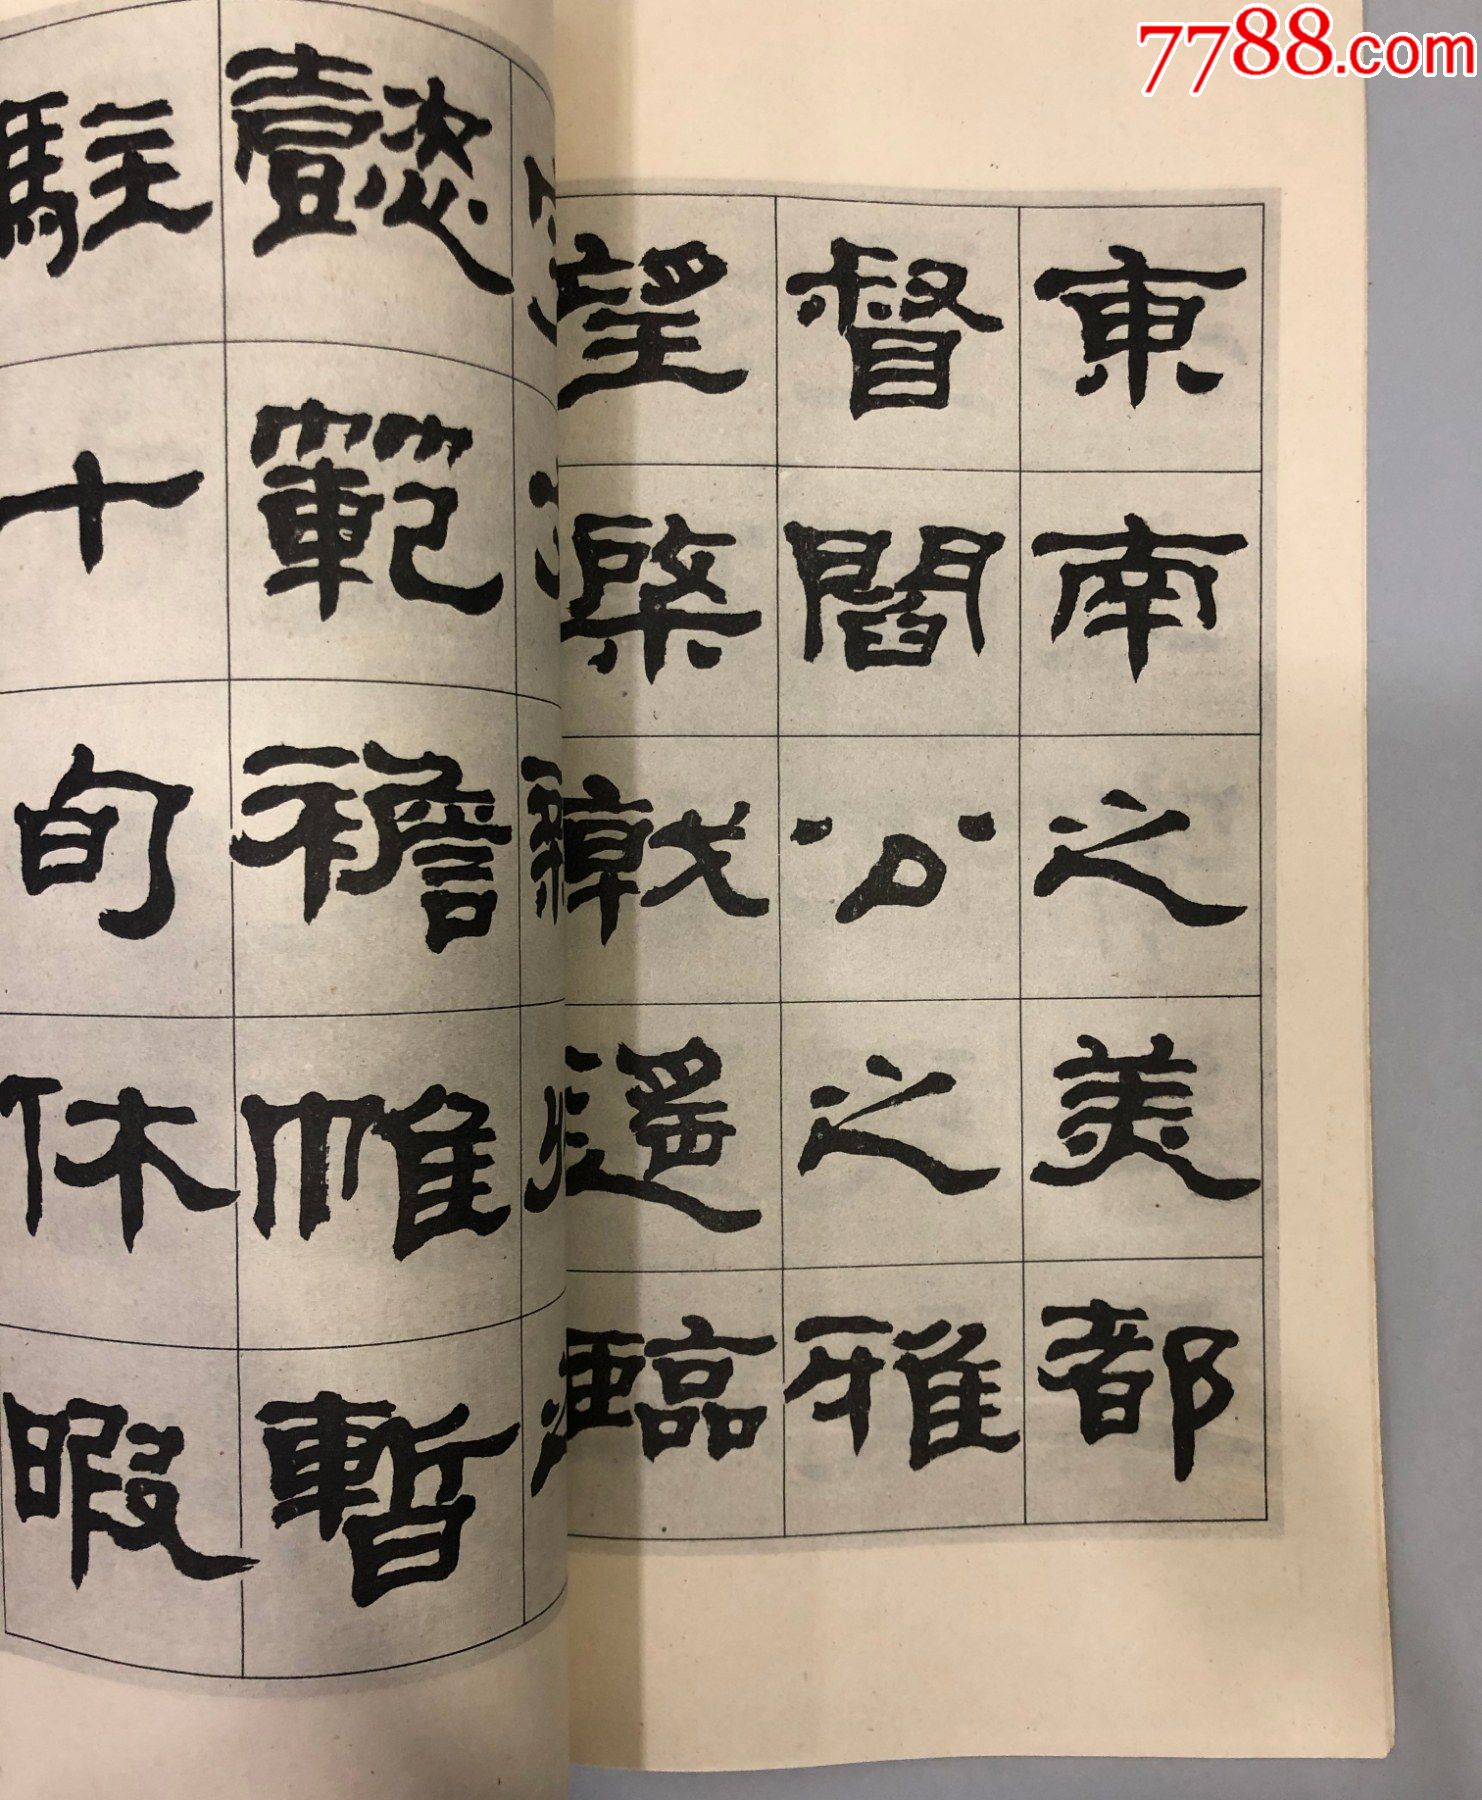 7788.com
東南之美都
督閻公之雅
望棨戟遙臨
懿範襜帷暫
駐十旬休暇